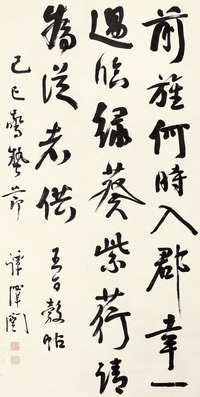 前旌何時入郡幸一
過臨綠葵紫荇請
為從者供 王百穀帖
己巳驚蟄節 譚澤闓